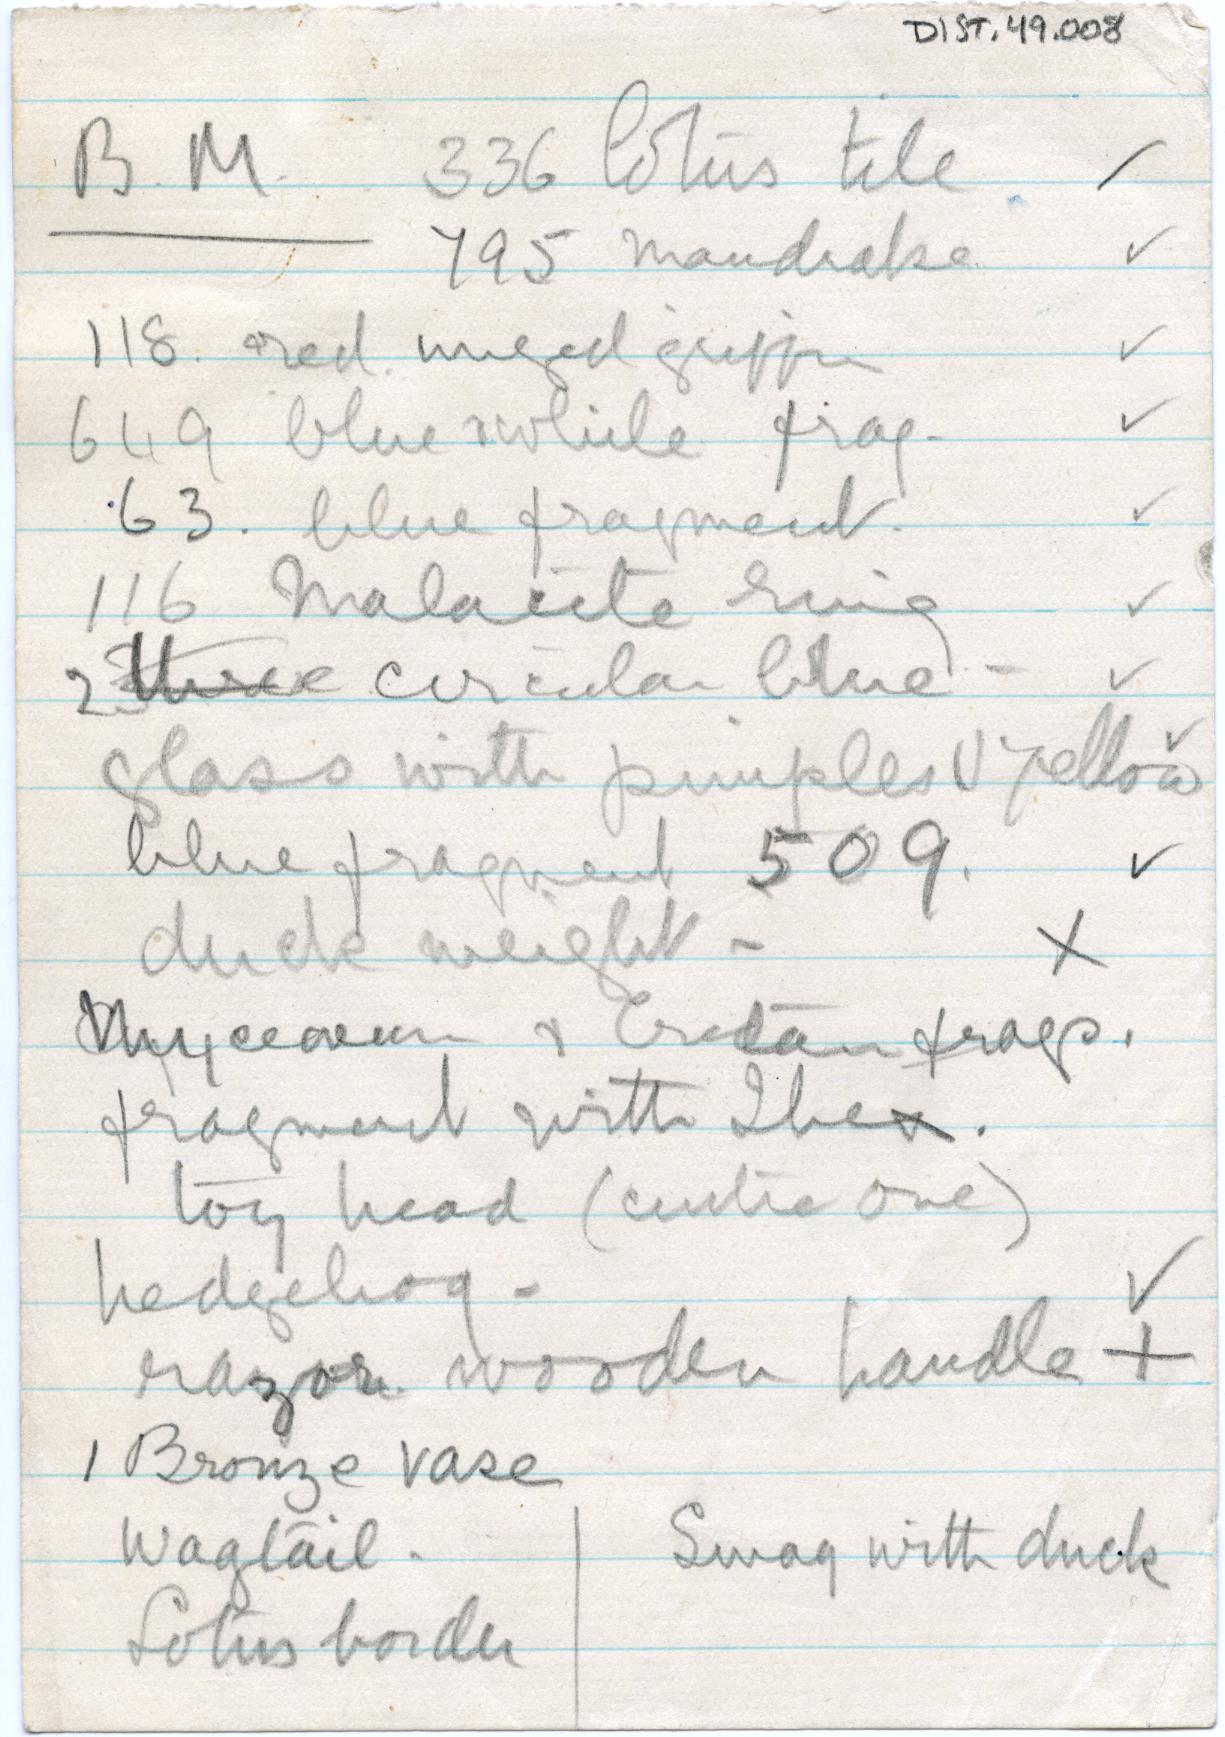 DIST.49.008
B.M. 336 lotus tile ✓
795 mandrake ✓
118. red. winged griffin ✓
649 blue & white frag. ✓
63. blue fragment. ✓
116 Malacite ring ✓
2 three circular blue - ✓
glass with pimples yellow ✓
blue fragment 509. ✓
duck weight - X
Mycenean & Cretan frags.
fragment with Ibex.
toy head (centre one)
hedgehog - ✓
razor. wooden handle +
1 Bronze vase
Wagtail. | Swag with duck
Lotus border